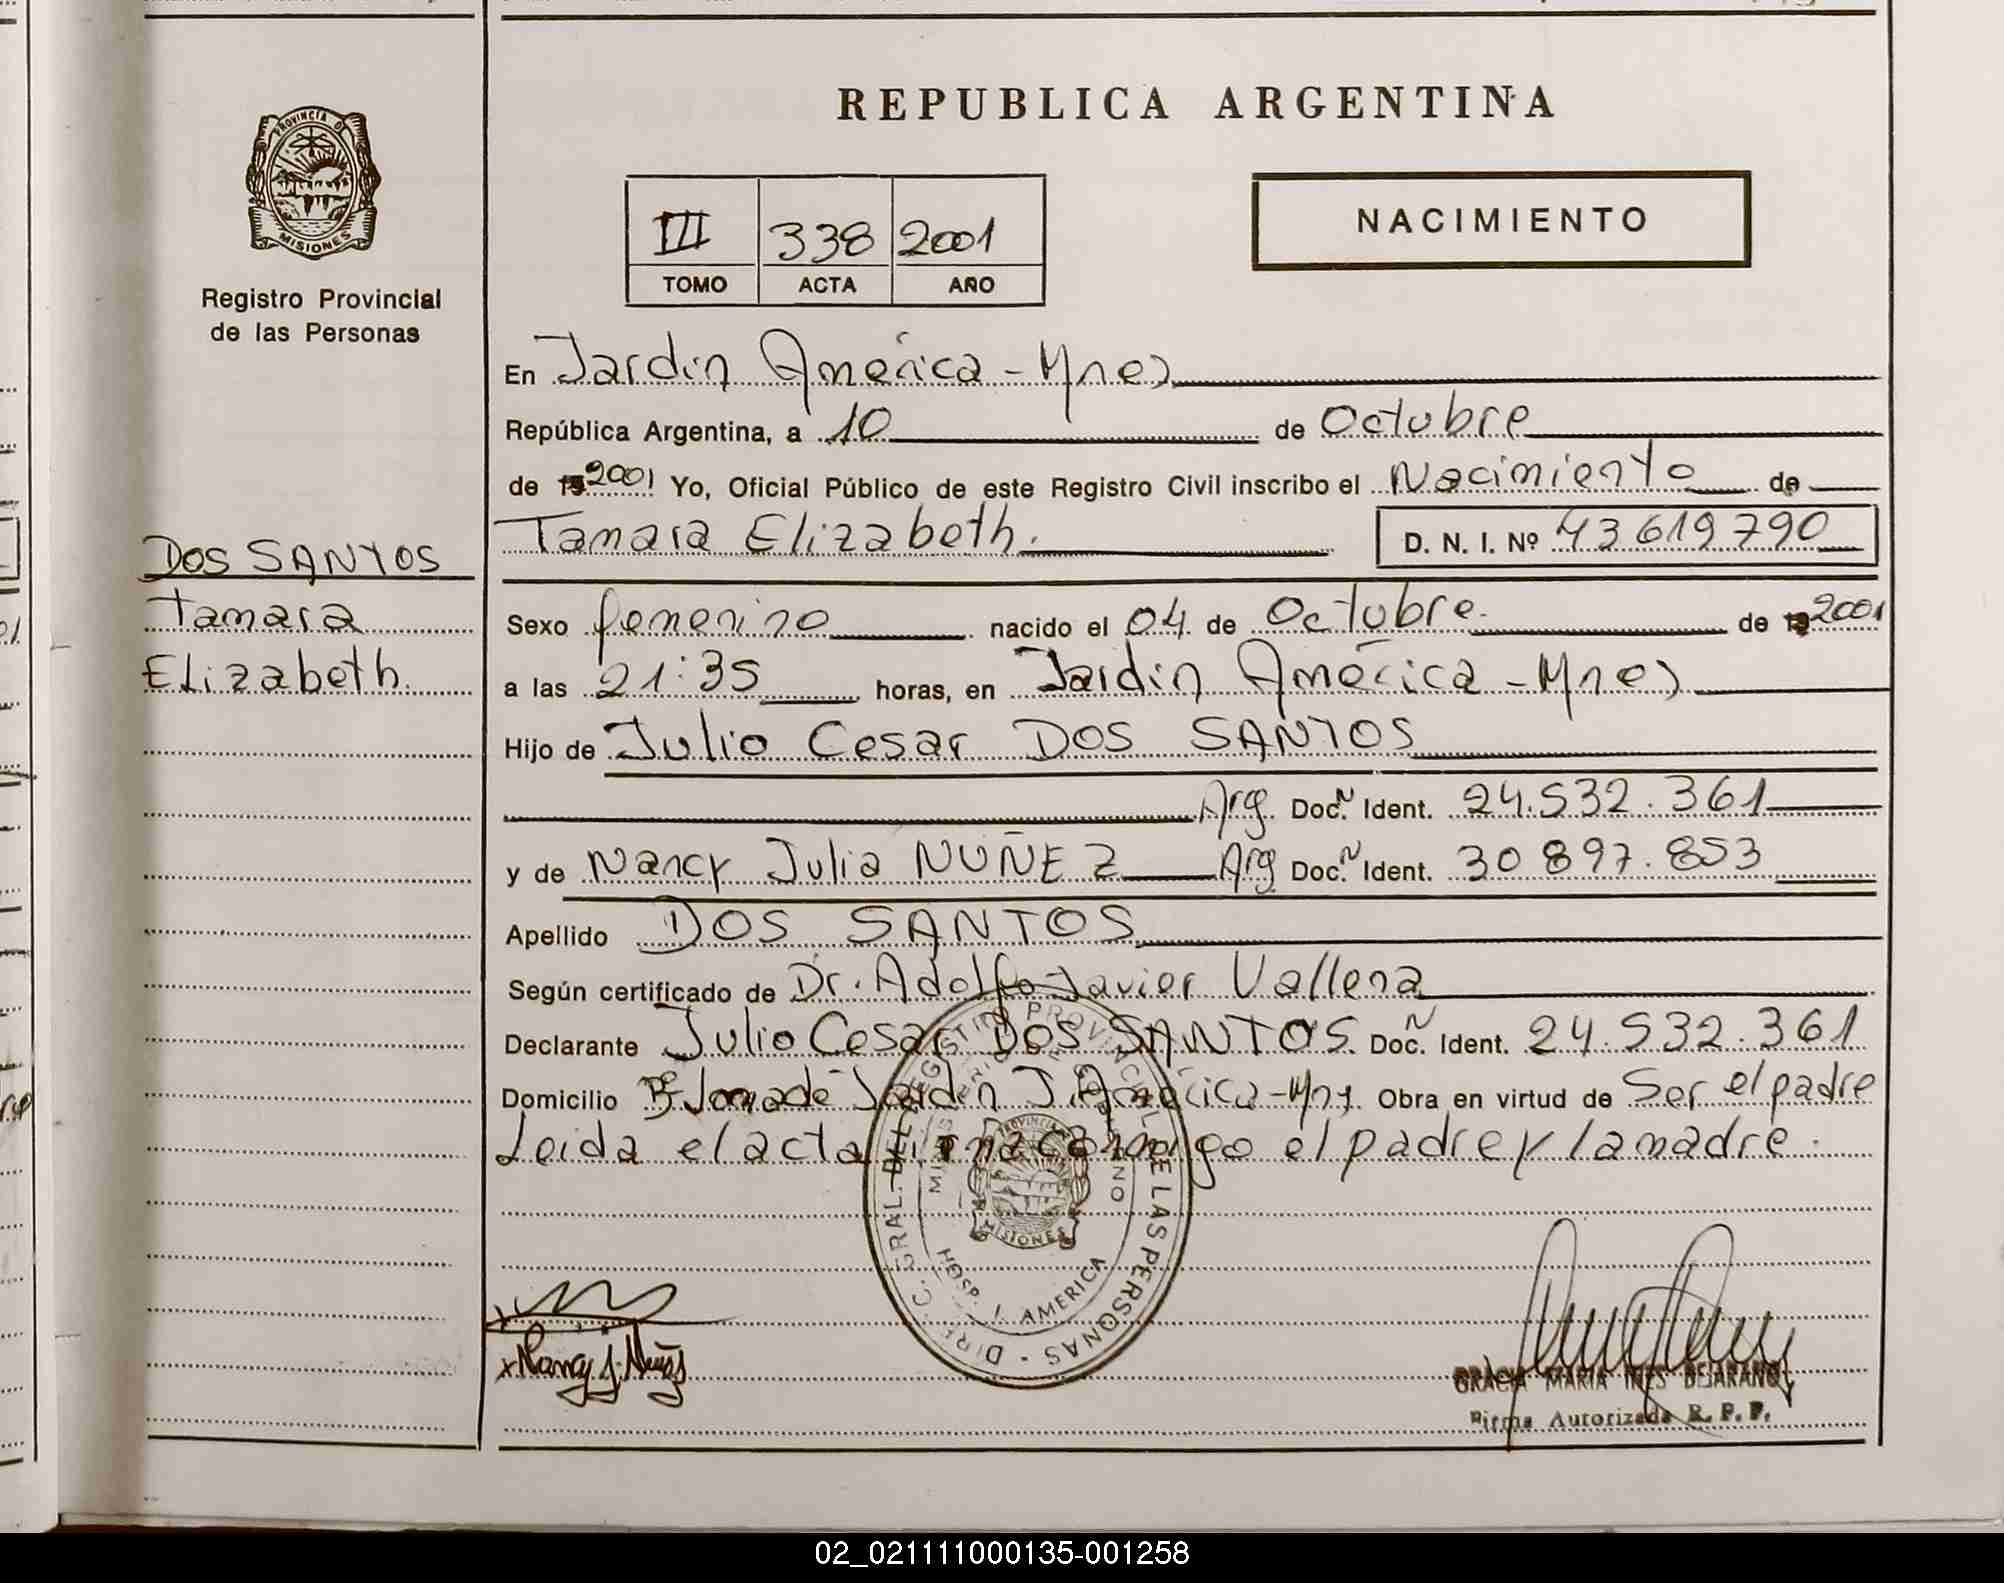 REPUBLICA ARGENTINA
PROVINCIA DE
MISIONES
Registro Provincial
de las Personas
III 338 2001
TOMO ACTA AÑO
NACIMIENTO
En Jardin América - Mnes
República Argentina, a 10 de Octubre
de 19 2001 Yo, Oficial Público de este Registro Civil inscribo el Nacimiento de
Tamara Elizabeth. D. N. I. Nº 43619790
DOS SANTOS
Tamara
Elizabeth
Sexo femenino nacido el 04 de Octubre. de 19 2001
a las 21:35 horas, en Jardin América - Mnes
Hijo de Julio Cesar DOS SANTOS
Arg Doc. Ident. 24.532.361
y de Nancy Julia NUÑEZ Arg Doc. Ident. 30 897.853
Apellido DOS SANTOS
Según certificado de Dr. Adolfo Javier Vallena
Declarante Julio Cesar DOS SANTOS. Doc. Ident. 24.532.361
Domicilio Jardin J. América - Obra en virtud de Ser el padre
Leida el acta firma conmigo el padre y la madre.
DIREC. GRAL. DEL REGISTRO PROVINCIAL DE LAS PERSONAS
HOSP. J. AMERICA
PROVINCIA DE
MISIONES
Nancy J. Nuñez
GRACIA MARIA INES BEJARANO
Firma Autorizada R. P. P.
02_021111000135-001258